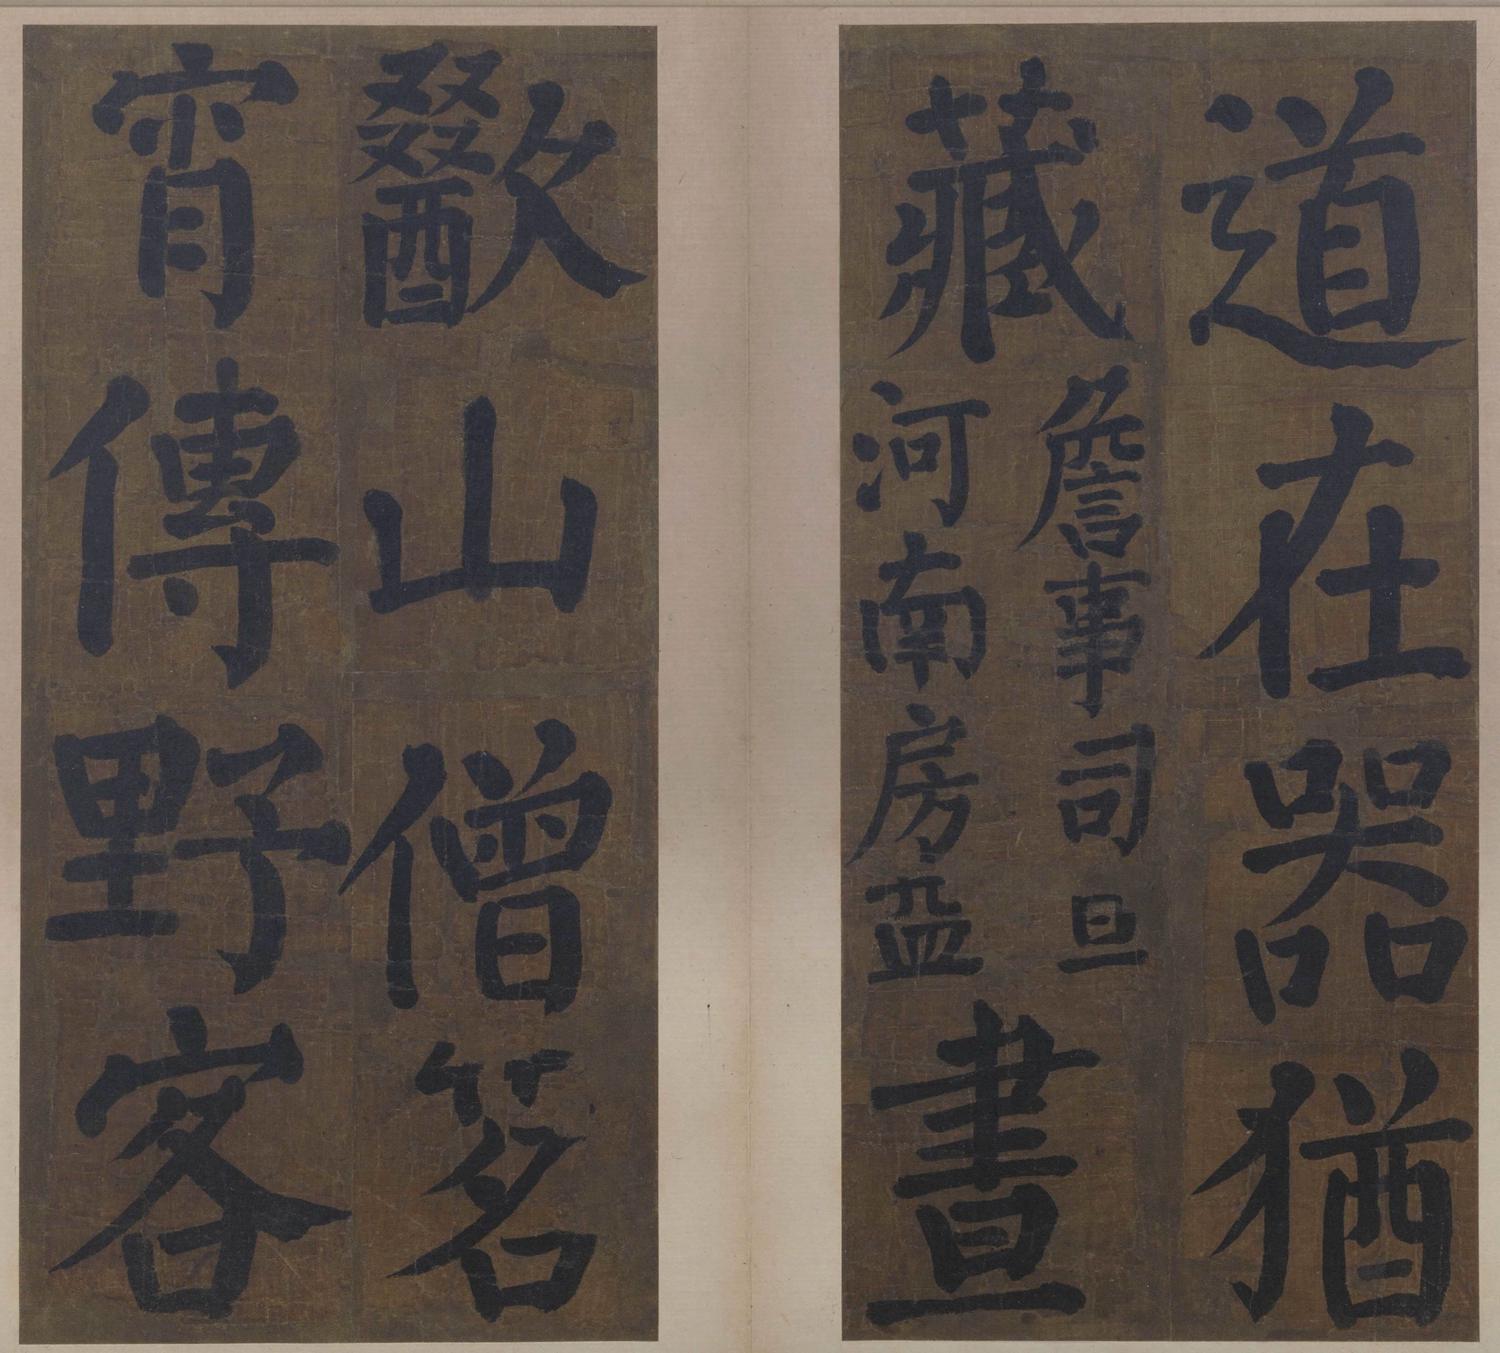 道在器猶
藏
詹事司旦
河南房盈
晝
歠山僧茗
宵傳野客